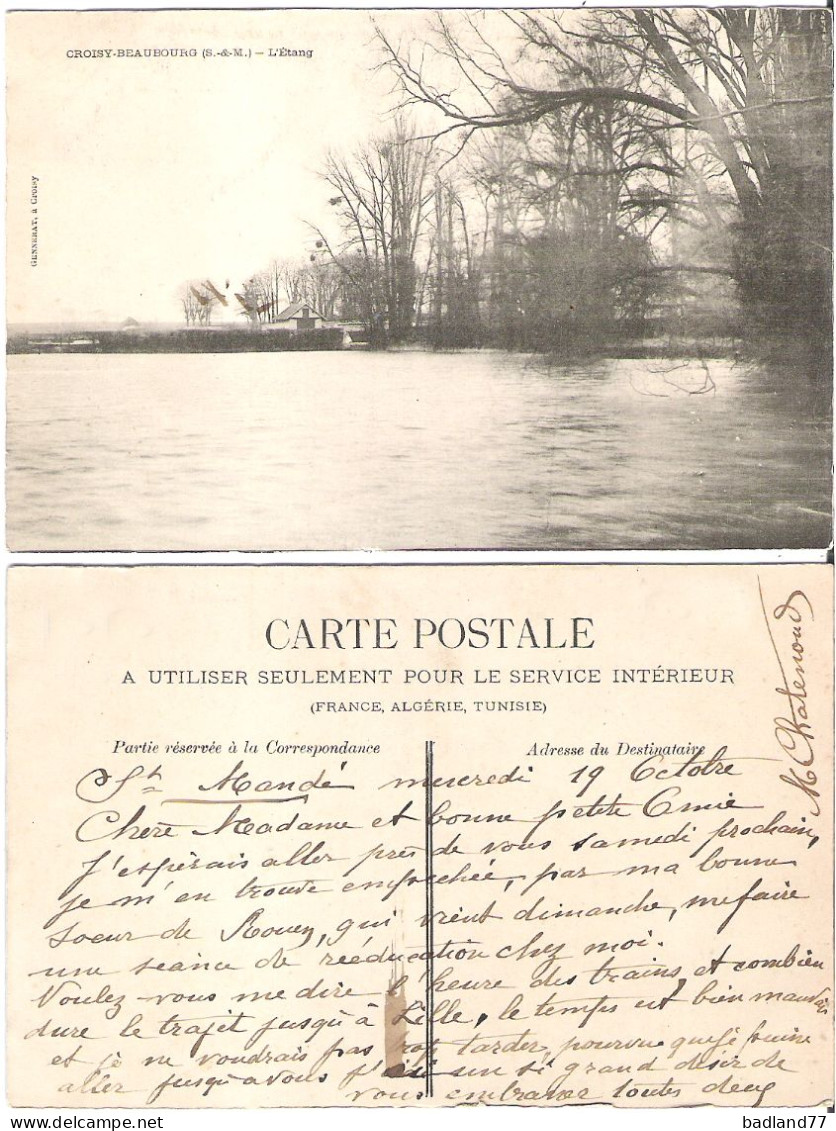 CROISY-BEAUBOURG (S.-&-M.) — L'Étang
GENNERAT, à Croisy
CARTE POSTALE
A UTILISER SEULEMENT POUR LE SERVICE INTÉRIEUR
(FRANCE, ALGÉRIE, TUNISIE)
Partie réservée à la Correspondance
Adresse du Destinataire
St Mandé mercredi 19 Octobre
Chère Madame et bonne petite Amie
J'espérais aller près de vous samedi prochain,
je m'en trouve empêchée, par ma bonne
soeur de Rouen, qui vient dimanche, me faire
une séance de rééducation chez moi.
Voulez-vous me dire l'heure des trains, et combien
dure le trajet jusqu'à Lille, le temps est bien mauvais
et je ne voudrais pas trop tarder, pourvu que je puisse
aller jusqu'à vous j'ai un si grand désir de
vous embrasser toutes deux
M Chatenoud
delcampe.net
badland77